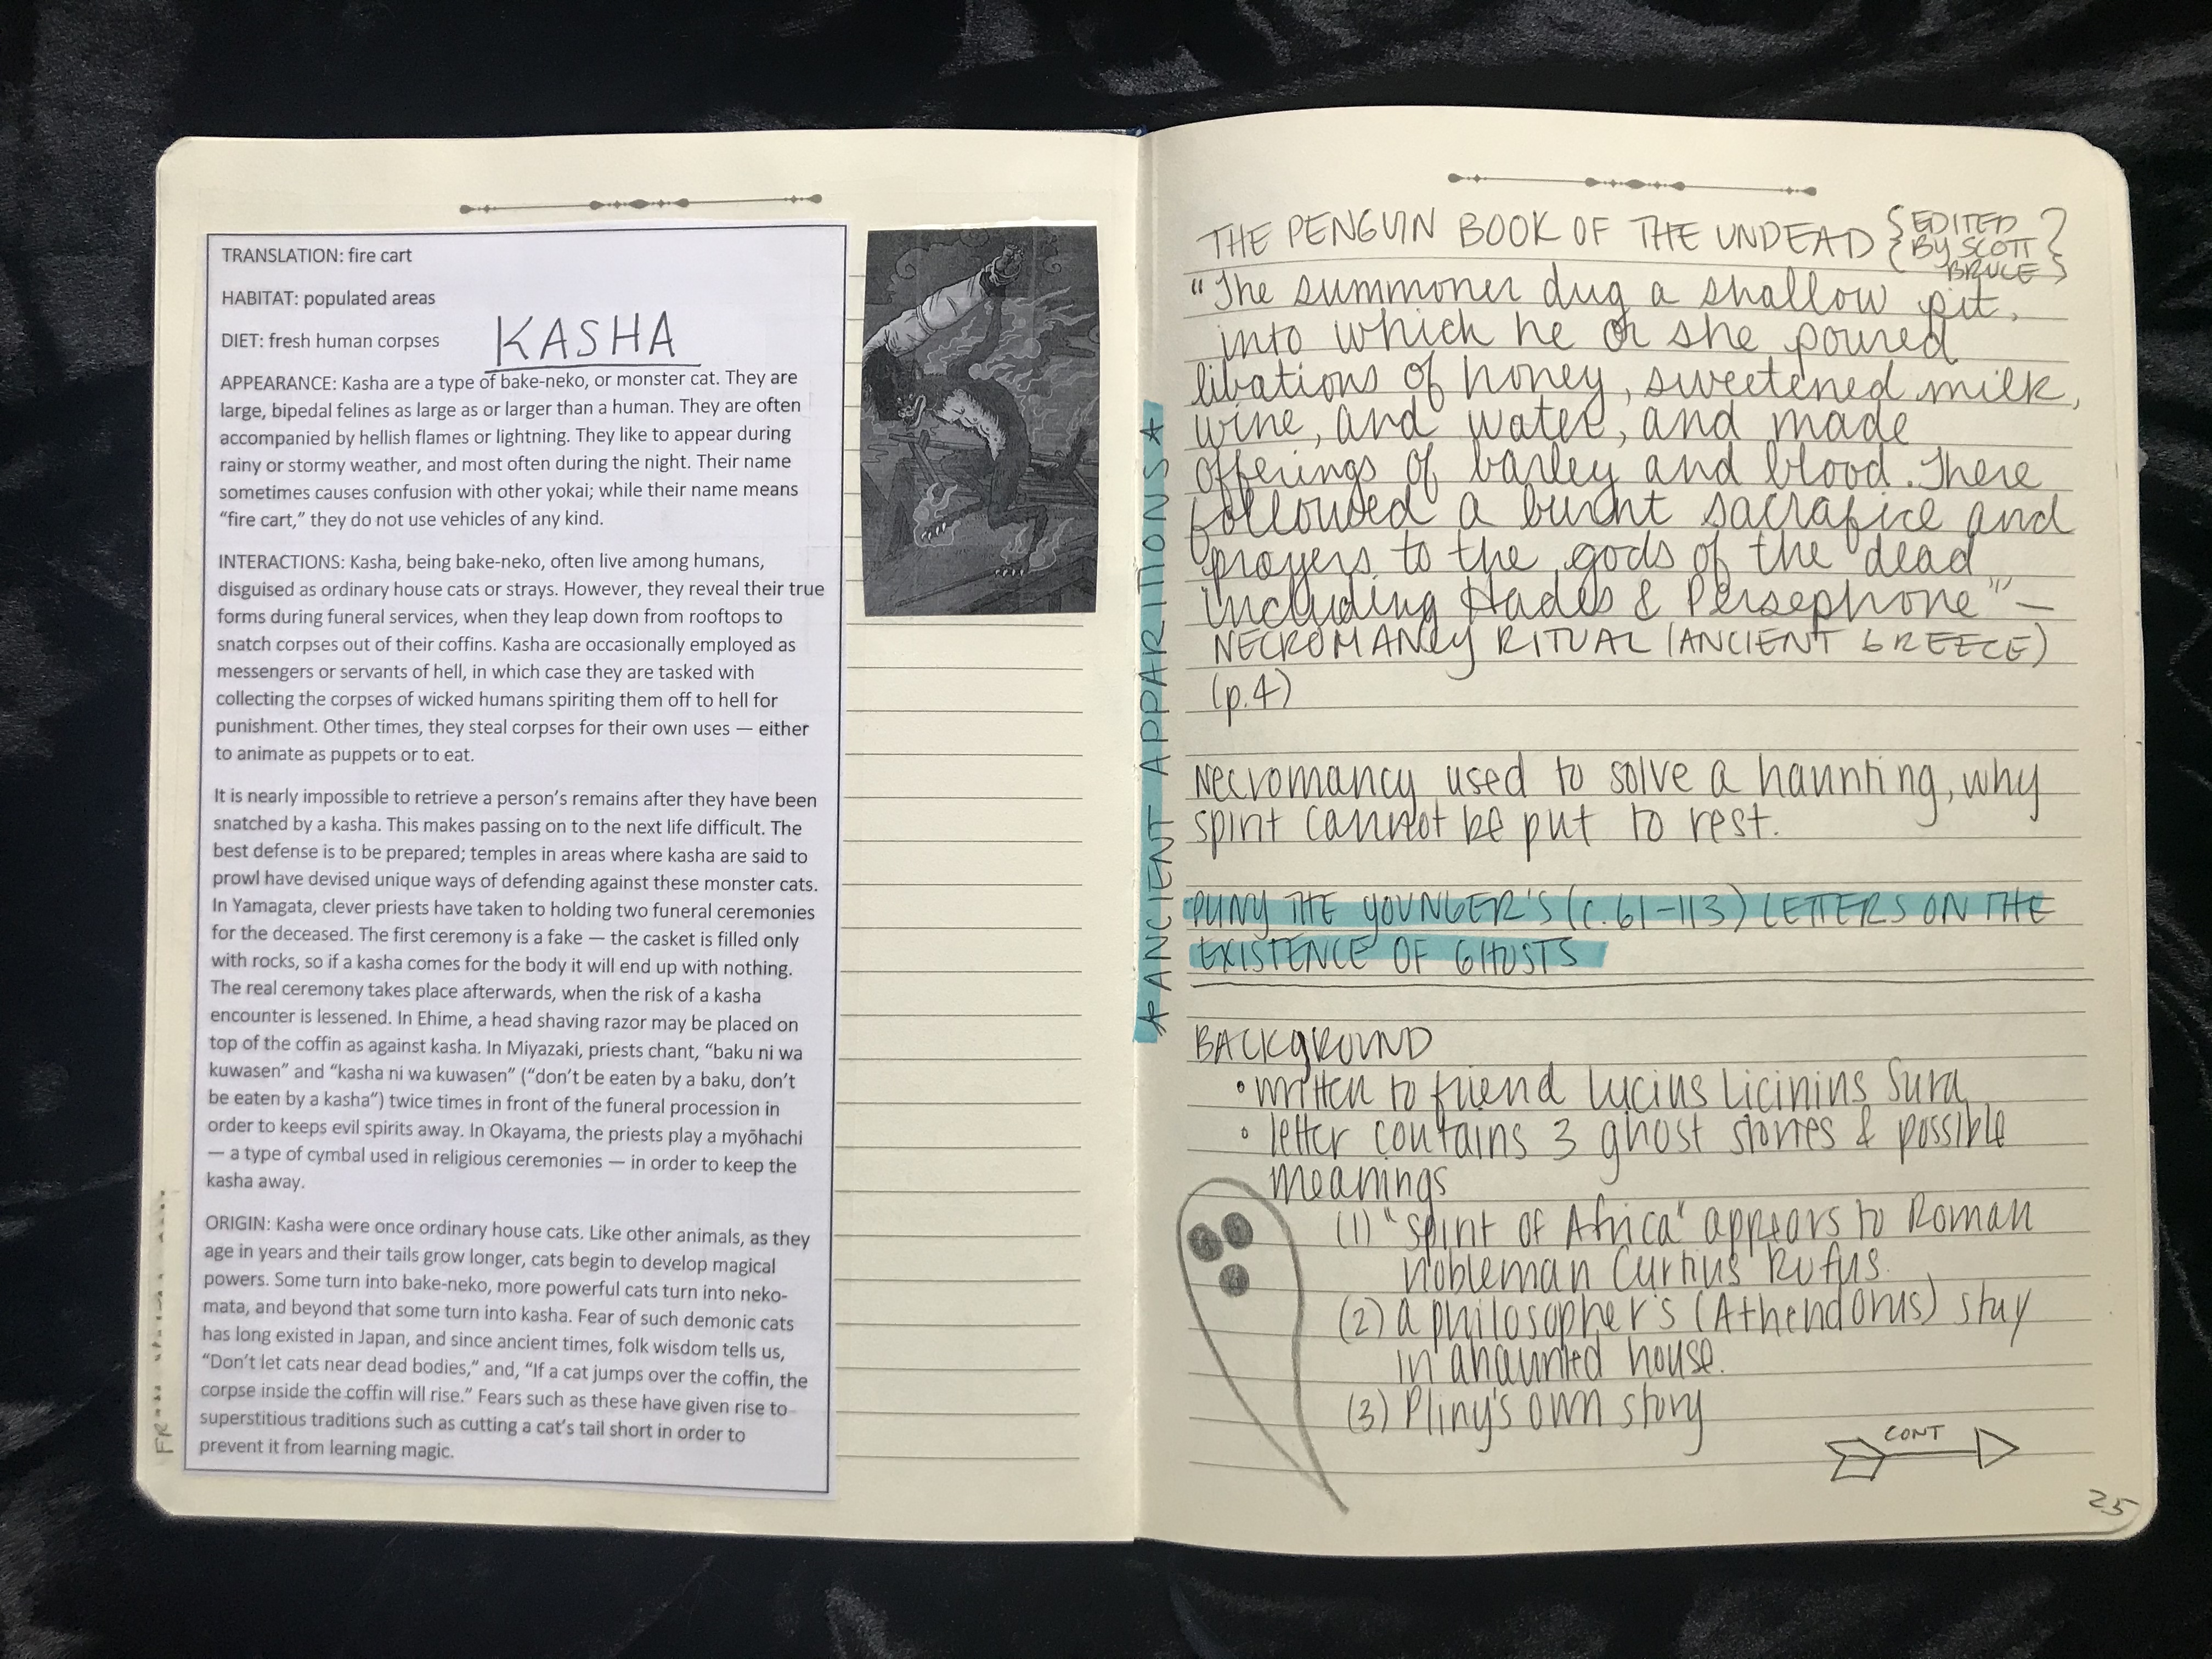 TRANSLATION: fire cart
HABITAT: populated areas
DIET: fresh human corpses
KASHA
APPEARANCE: Kasha are a type of bake-neko, or monster cat. They are
large, bipedal felines as large as or larger than a human. They are often
accompanied by hellish flames or lightning. They like to appear during
rainy or stormy weather, and most often during the night. Their name
sometimes causes confusion with other yokai; while their name means
“fire cart,” they do not use vehicles of any kind.
INTERACTIONS: Kasha, being bake-neko, often live among humans,
disguised as ordinary house cats or strays. However, they reveal their true
forms during funeral services, when they leap down from rooftops to
snatch corpses out of their coffins. Kasha are occasionally employed as
messengers or servants of hell, in which case they are tasked with
collecting the corpses of wicked humans spiriting them off to hell for
punishment. Other times, they steal corpses for their own uses — either
to animate as puppets or to eat.
It is nearly impossible to retrieve a person’s remains after they have been
snatched by a kasha. This makes passing on to the next life difficult. The
best defense is to be prepared; temples in areas where kasha are said to
prowl have devised unique ways of defending against these monster cats.
In Yamagata, clever priests have taken to holding two funeral ceremonies
for the deceased. The first ceremony is a fake — the casket is filled only
with rocks, so if a kasha comes for the body it will end up with nothing.
The real ceremony takes place afterwards, when the risk of a kasha
encounter is lessened. In Ehime, a head shaving razor may be placed on
top of the coffin as against kasha. In Miyazaki, priests chant, “baku ni wa
kuwasen” and “kasha ni wa kuwasen” (“don’t be eaten by a baku, don’t
be eaten by a kasha”) twice times in front of the funeral procession in
order to keeps evil spirits away. In Okayama, the priests play a myōhachi
— a type of cymbal used in religious ceremonies — in order to keep the
kasha away.
ORIGIN: Kasha were once ordinary house cats. Like other animals, as they
age in years and their tails grow longer, cats begin to develop magical
powers. Some turn into bake-neko, more powerful cats turn into neko-
mata, and beyond that some turn into kasha. Fear of such demonic cats
has long existed in Japan, and since ancient times, folk wisdom tells us,
“Don’t let cats near dead bodies,” and, “If a cat jumps over the coffin, the
corpse inside the coffin will rise.” Fears such as these have given rise to
superstitious traditions such as cutting a cat’s tail short in order to
prevent it from learning magic.
★ ANCIENT APPARITIONS ★
THE PENGUIN BOOK OF THE UNDEAD { EDITED
BY SCOTT
BRUCE }
"The summoner dug a shallow pit,
into which he or she poured
libations of honey, sweetened milk,
wine, and water, and made
offerings of barley and blood. There
followed a burnt sacrafice and
prayers to the gods of the dead
including Hades & Persephone" —
NECROMANCY RITUAL (ANCIENT GREECE)
(p.4)
Necromancy used to solve a haunting, why
spirit cannot be put to rest.
PLINY THE YOUNGER'S (c. 61-113) LETTERS ON THE
EXISTENCE OF GHOSTS
BACKGROUND
• written to friend Lucius Licinius Sura
• letter contains 3 ghost stories & possible
meanings
(1) "spirit of Africa" appears to Roman
nobleman Curtius Rufus.
(2) a philosopher's (Athendorus) stay
in a haunted house.
(3) Pliny's own story
CONT
25